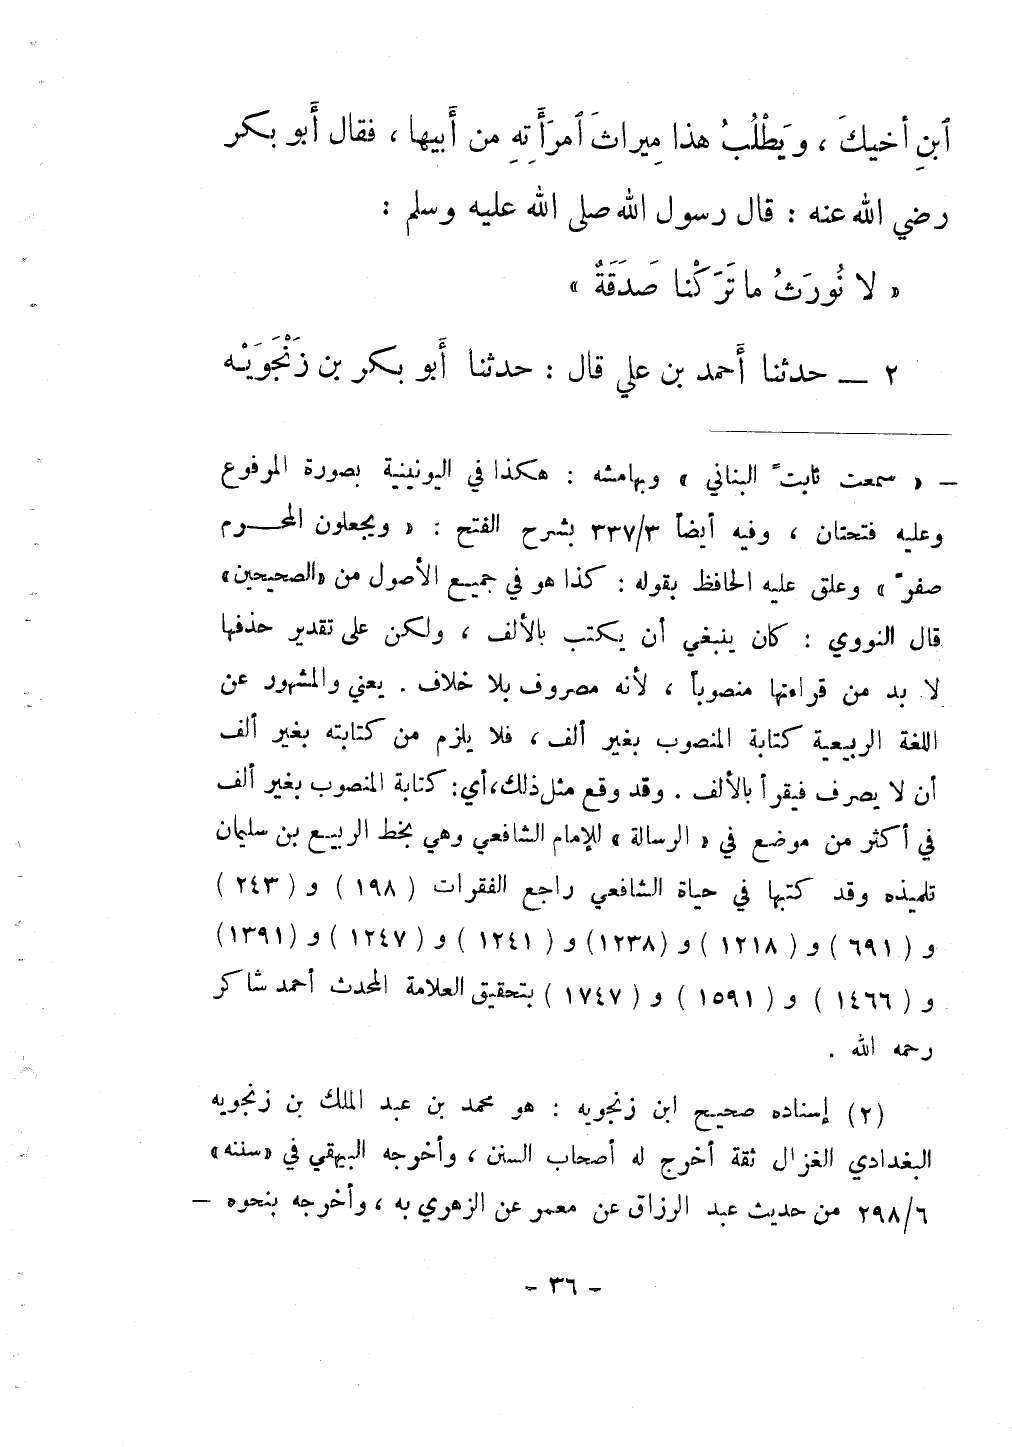 ٱبنِ أخيكَ ، ويَطْلُبُ هذا مِيراثَ ٱمرَأَتِهِ من أَبيها ، فقال أَبو بكر
رضي الله عنه : قال رسول الله صلى الله عليه وسلم :
« لا نُورَثُ ما تَرَكْنا صَدَقَةٌ »
٢ ــ حدثنا أَحمد بن علي قال : حدثنا أَبو بكر بن زَنْجَوَيْه
– « سمعت ثابتً البناني » وبهامشه : هكذا في اليونينية بصورة المرفوع
وعليه فتحتان ، وفيه أيضاً ٣٣٧/٣ بشرح الفتح : « ويجعلون المحرم
صفرً » وعلق عليه الحافظ بقوله : كذا هو في جميع الأصول من «الصحيحين»
قال النووي : كان ينبغي أن يكتب بالألف ، ولكن على تقدير حذفها
لا بد من قراءتها منصوباً ، لأنه مصروف بلا خلاف . يعني والمشهور عن
اللغة الربيعية كتابة المنصوب بغير ألف ، فلا يلزم من كتابته بغير ألف
أن لا يصرف فيقرأ بالألف . وقد وقع مثل ذلك،أي: كتابة المنصوب بغير ألف
في أكثر من موضع في « الرسالة » للإمام الشافعي وهي بخط الربيع بن سليمان
تلميذه وقد كتبها في حياة الشافعي راجع الفقرات ( ١٩٨ ) و ( ٢٤٣ )
و ( ٦٩١ ) و ( ١٢١٨ ) و (١٢٣٨) و ( ١٢٤١ ) و ( ١٢٤٧ ) و (١٣٩١)
و ( ١٤٦٦ ) و ( ١٥٩١ ) و ( ١٧٤٧ ) بتحقيق العلامة المحدث أحمد شاكر
رحمه الله .
(٢) إسناده صحيح ابن زنجويه : هو محمد بن عبد الملك بن زنجويه
البغدادي الغزال ثقة أخرج له أصحاب السنن ، وأخرجه البيهقي في «سننه»
٢٩٨/٦ من حديث عبد الرزاق عن معمر عن الزهري به ، وأخرجه بنحوه –
- ٣٦ -